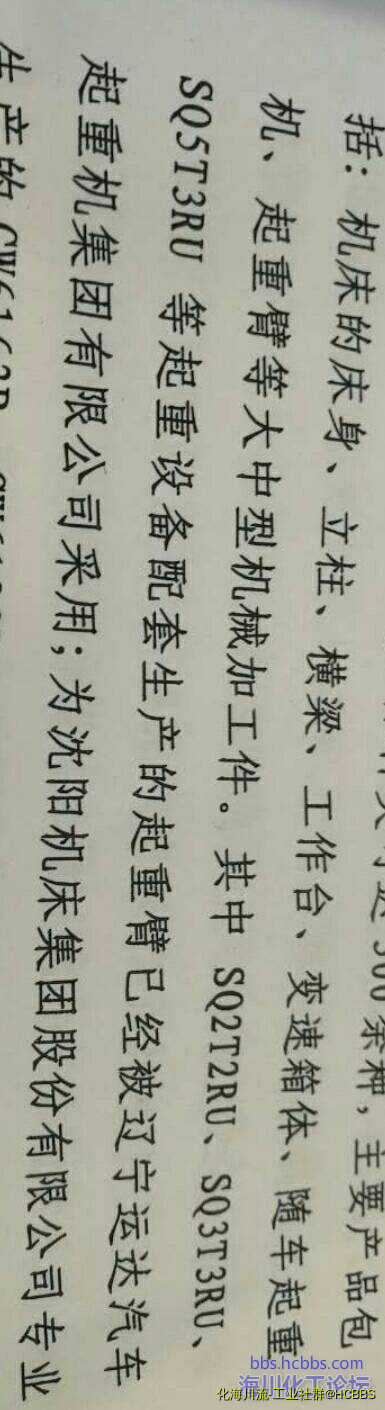 300余种，主要产品包
括：机床的床身、立柱、横梁、工作台、变速箱体、随车起重
机、起重臂等大中型机械加工件。其中 SQ2T2RU、SQ3T3RU、
SQ5T3RU 等起重设备配套生产的起重臂已经被辽宁运达汽车
起重机集团有限公司采用；为沈阳机床集团股份有限公司专业
生产的 CW6163B
bbs.hcbbs.com
海川化工论坛
化海川流-工业社群@HCBBS